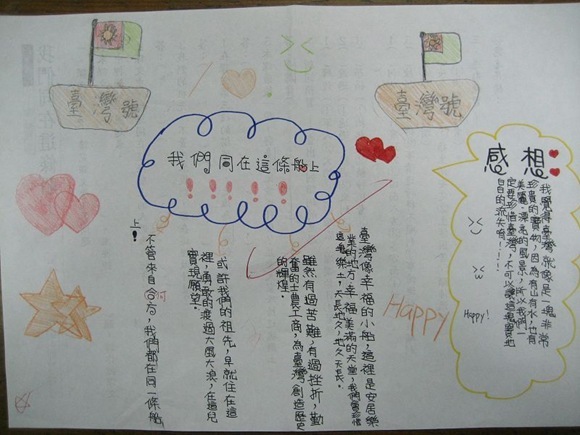 臺灣號
臺灣號
我們同在這條船上
!!!!!!
臺灣像幸福的小船，這裡是安居樂
業的地方，幸福美滿的天堂，我們要珍惜
這塊樂土，天長地久，地久天長。
雖然有過苦難，有過挫折，勤
奮的士農工商，為臺灣創造歷史
的輝煌。
或許我們的祖先，早就住在這
裡，勇敢的渡過大風大浪，在這兒
實現願望。
不管來自何方，我們都在同一條船
上！
Happy
感想:
我覺得臺灣就像是一塊非常
珍貴的寶物，因為有山有水，也有
美麗、漂亮的風景，所以我們一
定要珍惜臺灣，不可以讓這塊寶地
白白的流失啊！！！
Happy!